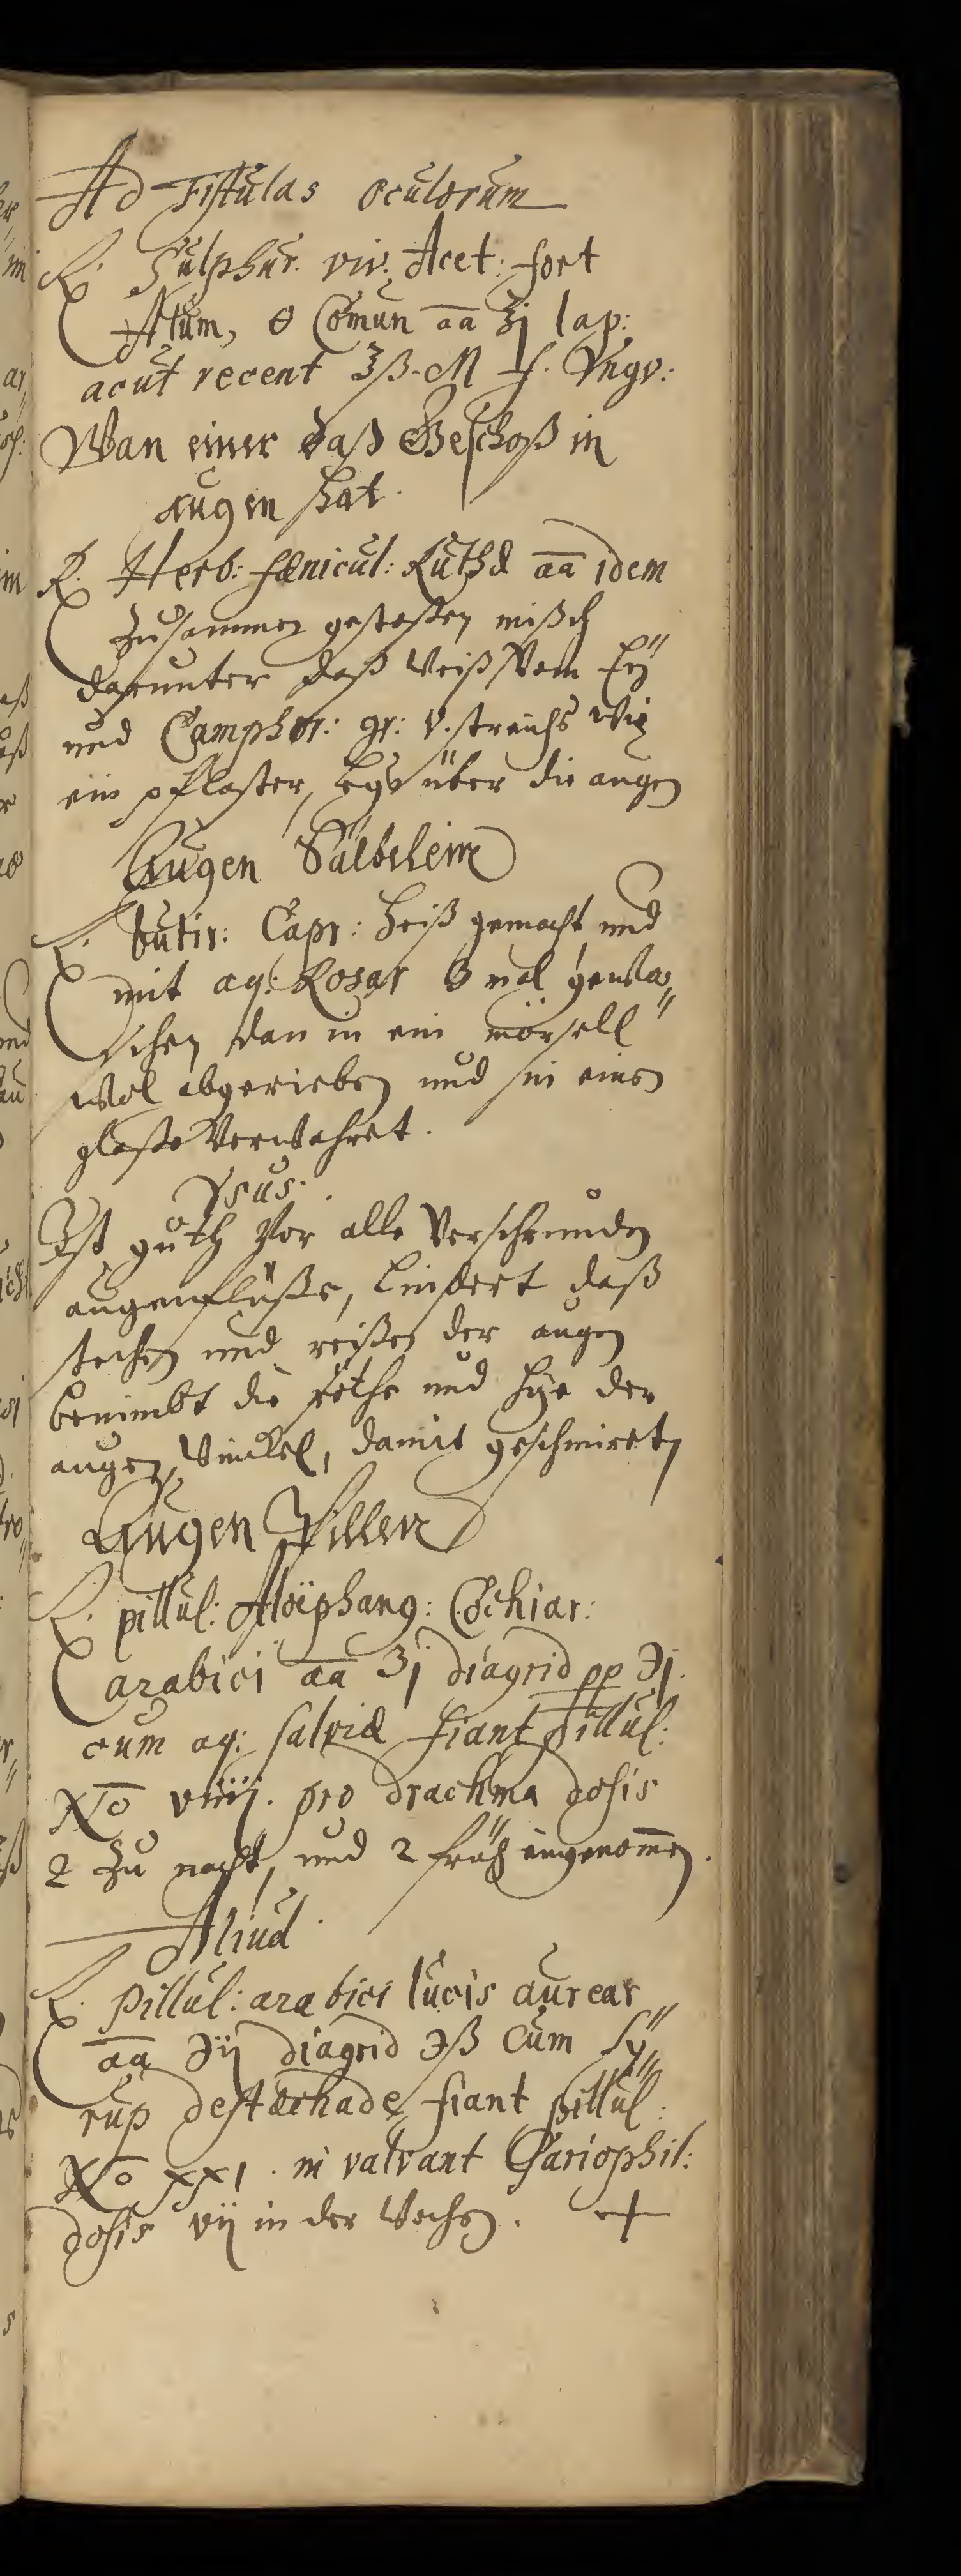 Ad Fistulas oculorum
R. Sulphur. viv. Acet: fort
Alum, ⊖ Comun aa ʒj lap:
acut recent ʒß. M f. Vngv:
Wan einer daß Geschoß in
augen hat.
R. Herb: fænicul: Ruthæ aa idem
Zusammen gestoßen misch
darunter daß Weiß Vom Eÿ
und Camphor: gr: V. streichs wie
ein pflaster, legs über die augen
Augen Sälbelein
R. butir: Capr: heiß gemacht und
mit aq: Rosar 3 mal gewa„
schen dan in ein mörsell
wol abgerieben und in einen
glaße Verwahret.
Vsus.
Ist guth Vor alle Verschrunden
augenflüsse, Lindert daß
stechen und reißen der augen
benimbt die röthe und hize der
augen Winckel, damit geschmiret
Augen Pillen
R. pillul: Aloiphang: Cochiar:
arabici aa ʒj diagrid pp ℈j.
cum aq: salviæ fiant Pillul:
No viiij. pro drachma dosis
2 zu nacht, und 2 früh eingenomen.
Aliud.
R. pillul: arabici lucis aurear
aa ℈ij diagrid ℈ß Cum Sy„
rup de stæchade fiant pillul:
No XXI. in valvant Gariophil:
dosis vij in der Wochen.